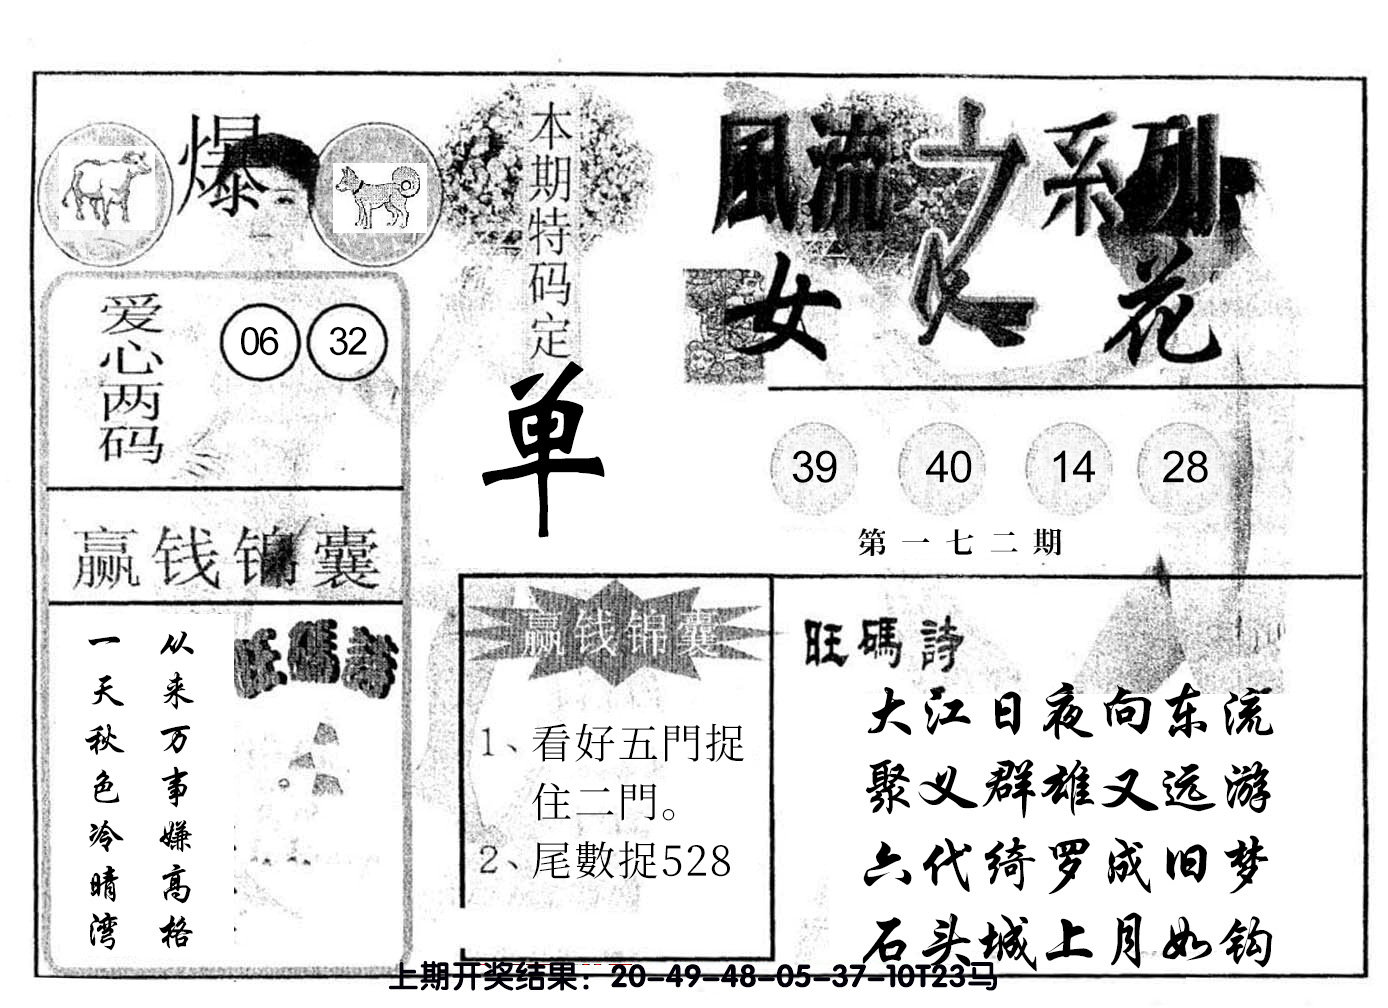 爆
爱心两码
06 32
赢钱锦囊
从来万事嫌高格
一天秋色冷晴湾
旺碼詩
本期特码定
单
赢钱锦囊
1、看好五門捉
住二門。
2、尾數捉528
風流之系列
女人花
39 40 14 28
第一七二期
旺碼詩
大江日夜向东流
聚义群雄又远游
六代绮罗成旧梦
石头城上月如钩
上期开奖结果：20-49-48-05-37-10T23马